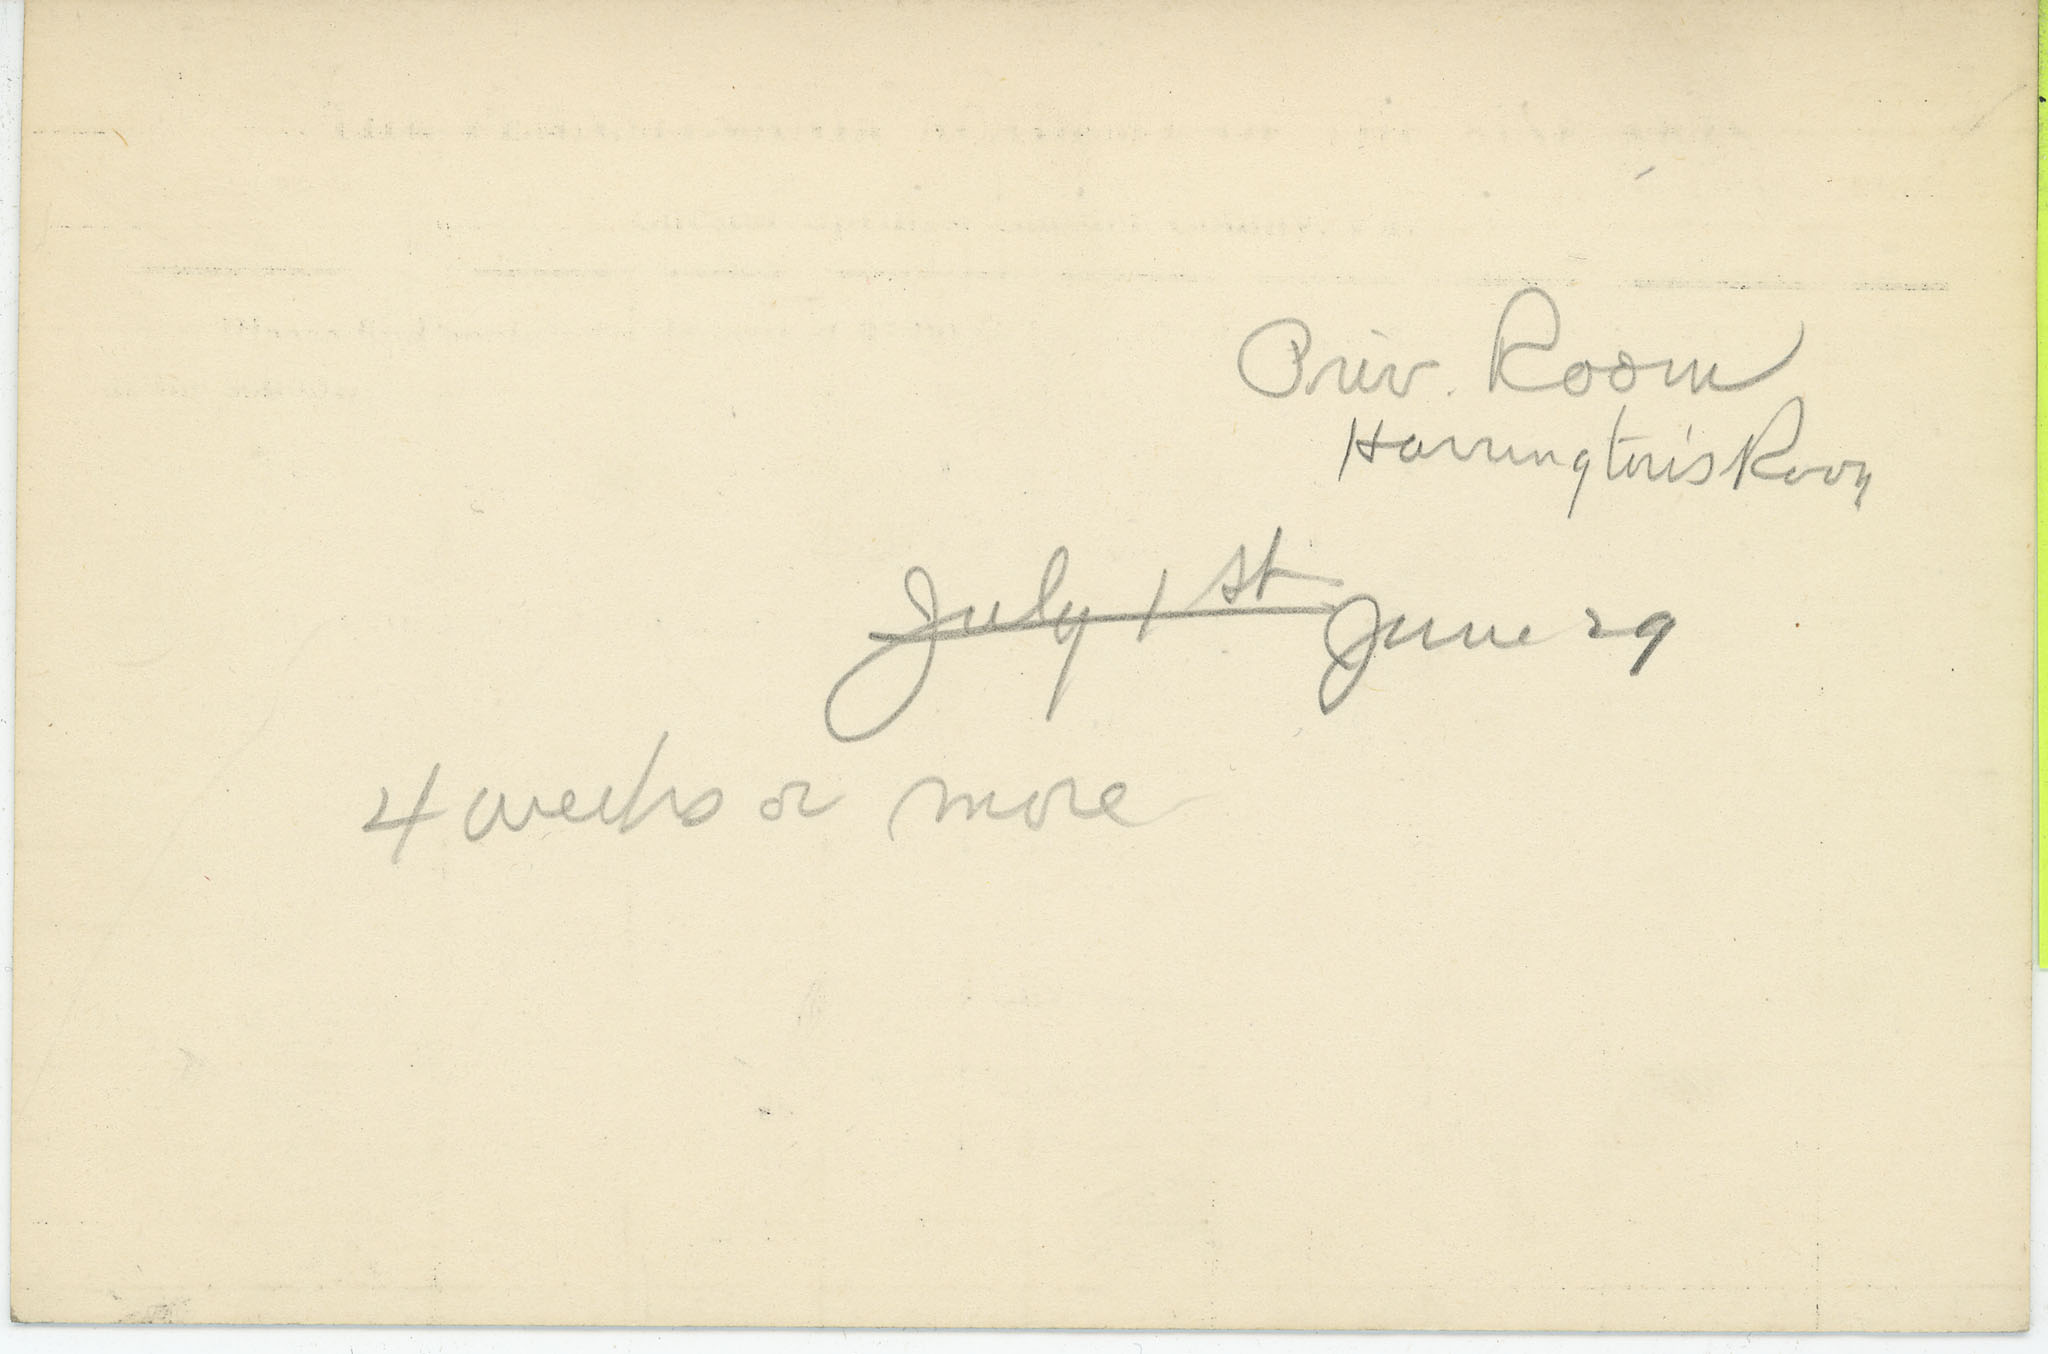 Priv. Room
Harrington's Room
July 1st June 29
4 weeks or more